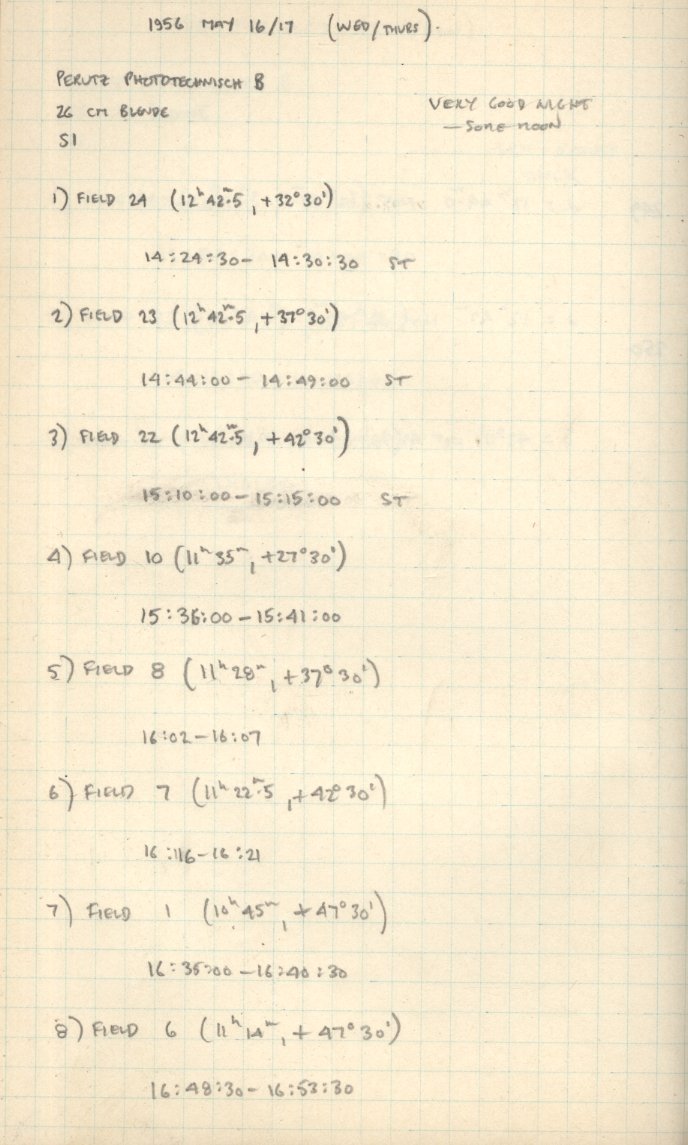 1956 MAY 16/17 (WED/THURS).
PERUTZ PHOTOTECHNISCH B
26 CM BLENDE
S1
VERY GOOD NIGHT
— SOME MOON
1) FIELD 24 (12ʰ42ᵐ.5, +32°30')
14:24:30 – 14:30:30 ST
2) FIELD 23 (12ʰ42ᵐ.5, +37°30')
14:44:00 – 14:49:00 ST
3) FIELD 22 (12ʰ42ᵐ.5, +42°30')
15:10:00 – 15:15:00 ST
4) FIELD 10 (11ʰ35ᵐ, +27°30')
15:36:00 – 15:41:00
5) FIELD 8 (11ʰ28ᵐ, +37°30')
16:02 – 16:07
6) FIELD 7 (11ʰ22ᵐ.5, +42°30')
16:16 – 16:21
7) FIELD 1 (10ʰ45ᵐ, +47°30')
16:35:00 – 16:40:30
8) FIELD 6 (11ʰ14ᵐ, +47°30')
16:48:30 – 16:53:30